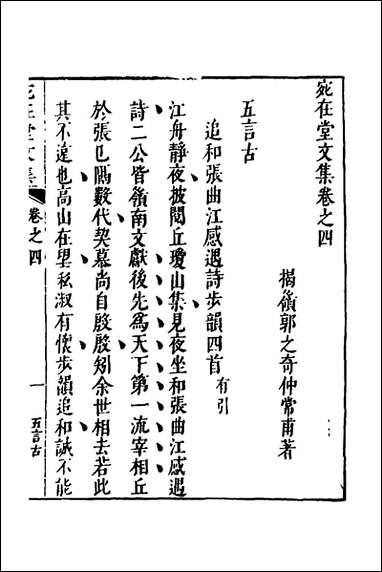 宛在堂文集卷之四
揭嶺郭之奇仲常甫著
五言古
追和張曲江感遇詩步韻四首有引
江舟靜夜披閱丘瓊山集見夜坐和張曲江感遇
詩二公皆嶺南文獻後先爲天下第一流宰相丘
於張也隔數代契慕尚自殷殷矧余世相去若此
其不遠也高山在望私淑有懷步韻追和誠不能
宛在堂文集
卷之四
一
五言古